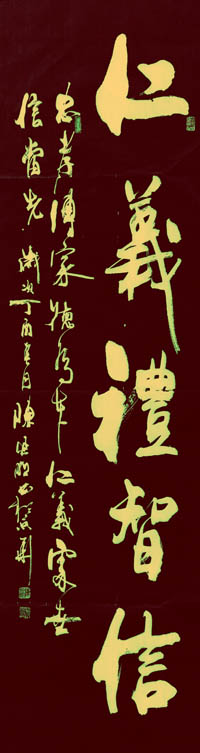 仁義禮智信
忠孝傳家德為本仁義處世
信當先歲次丁酉年月陳